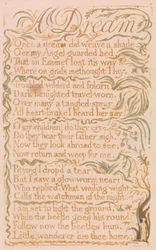 A Dream
Once a dream did weave a shade,
O'er my Angel-guarded bed,
That an Emmet lost it's way
Where on grass methought I lay.
Troubled wilderd and folorn
Dark benighted travel-worn,
Over many a tangled spray
All heart-broke I heard her say.
O my children! do they cry,
Do they hear their father sigh.
Now they look abroad to see,
Now return and weep for me.
Pitying I drop'd a tear:
But I saw a glow-worm near:
Who replied. What wailing wight
Calls the watchman of the night.
I am set to light the ground,
While the beetle goes his round:
Follow now the beetles hum,
Little wanderer hie thee home.